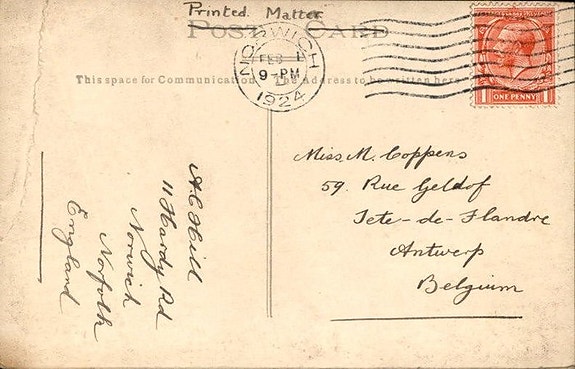 Printed Matter
POST CARD
NORWICH
FEB 1
9-PM
1924
ONE PENNY
This space for Communication The Address to be written here
Miss M. Coppens
59. Rue Geldof
Tete-de-Flandre
Antwerp
Belgium
A C Hill
11 Hardy Rd
Norwich
Norfolk
England